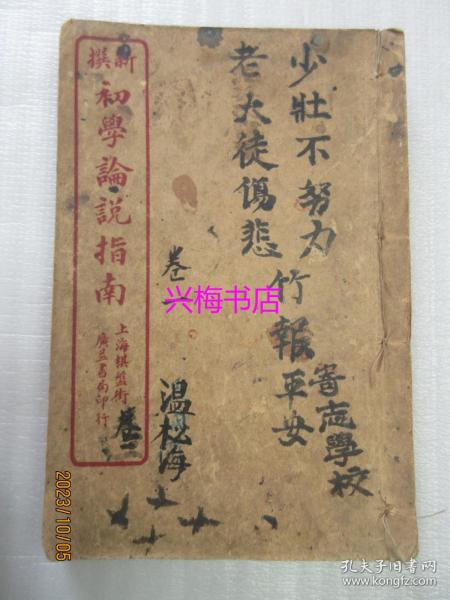 少壯不努力
老大徒傷悲
竹報平安
寄志學校
卷一
溫松海
新撰
初學論說指南
上海棋盤街
廣益書局印行
卷一
兴梅书店
2023/10/05
孔夫子旧书网
www.kongfz.com